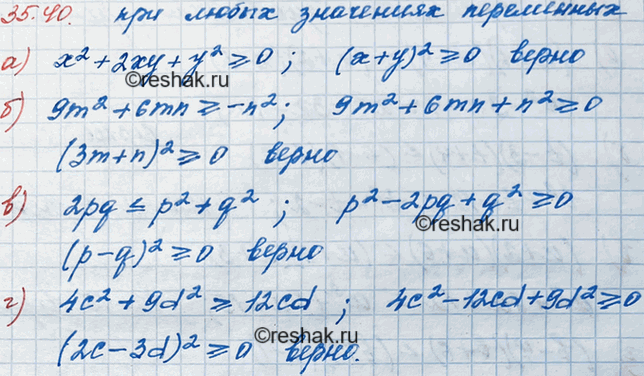 35.40. при любых значениях переменных
а) x² + 2xy + y² ⩾ 0 ; (x+y)² ⩾ 0 верно
©reshak.ru
б) 9m² + 6mn ⩾ -n² ; 9m² + 6mn + n² ⩾ 0
(3m+n)² ⩾ 0 верно
в) 2pq ≤ p² + q² ; p² - 2pq + q² ⩾ 0
©reshak.ru
(p-q)² ⩾ 0 верно
г) 4c² + 9d² ⩾ 12cd ; 4c² - 12cd + 9d² ⩾ 0
©reshak.ru
(2c - 3d)² ⩾ 0 верно.